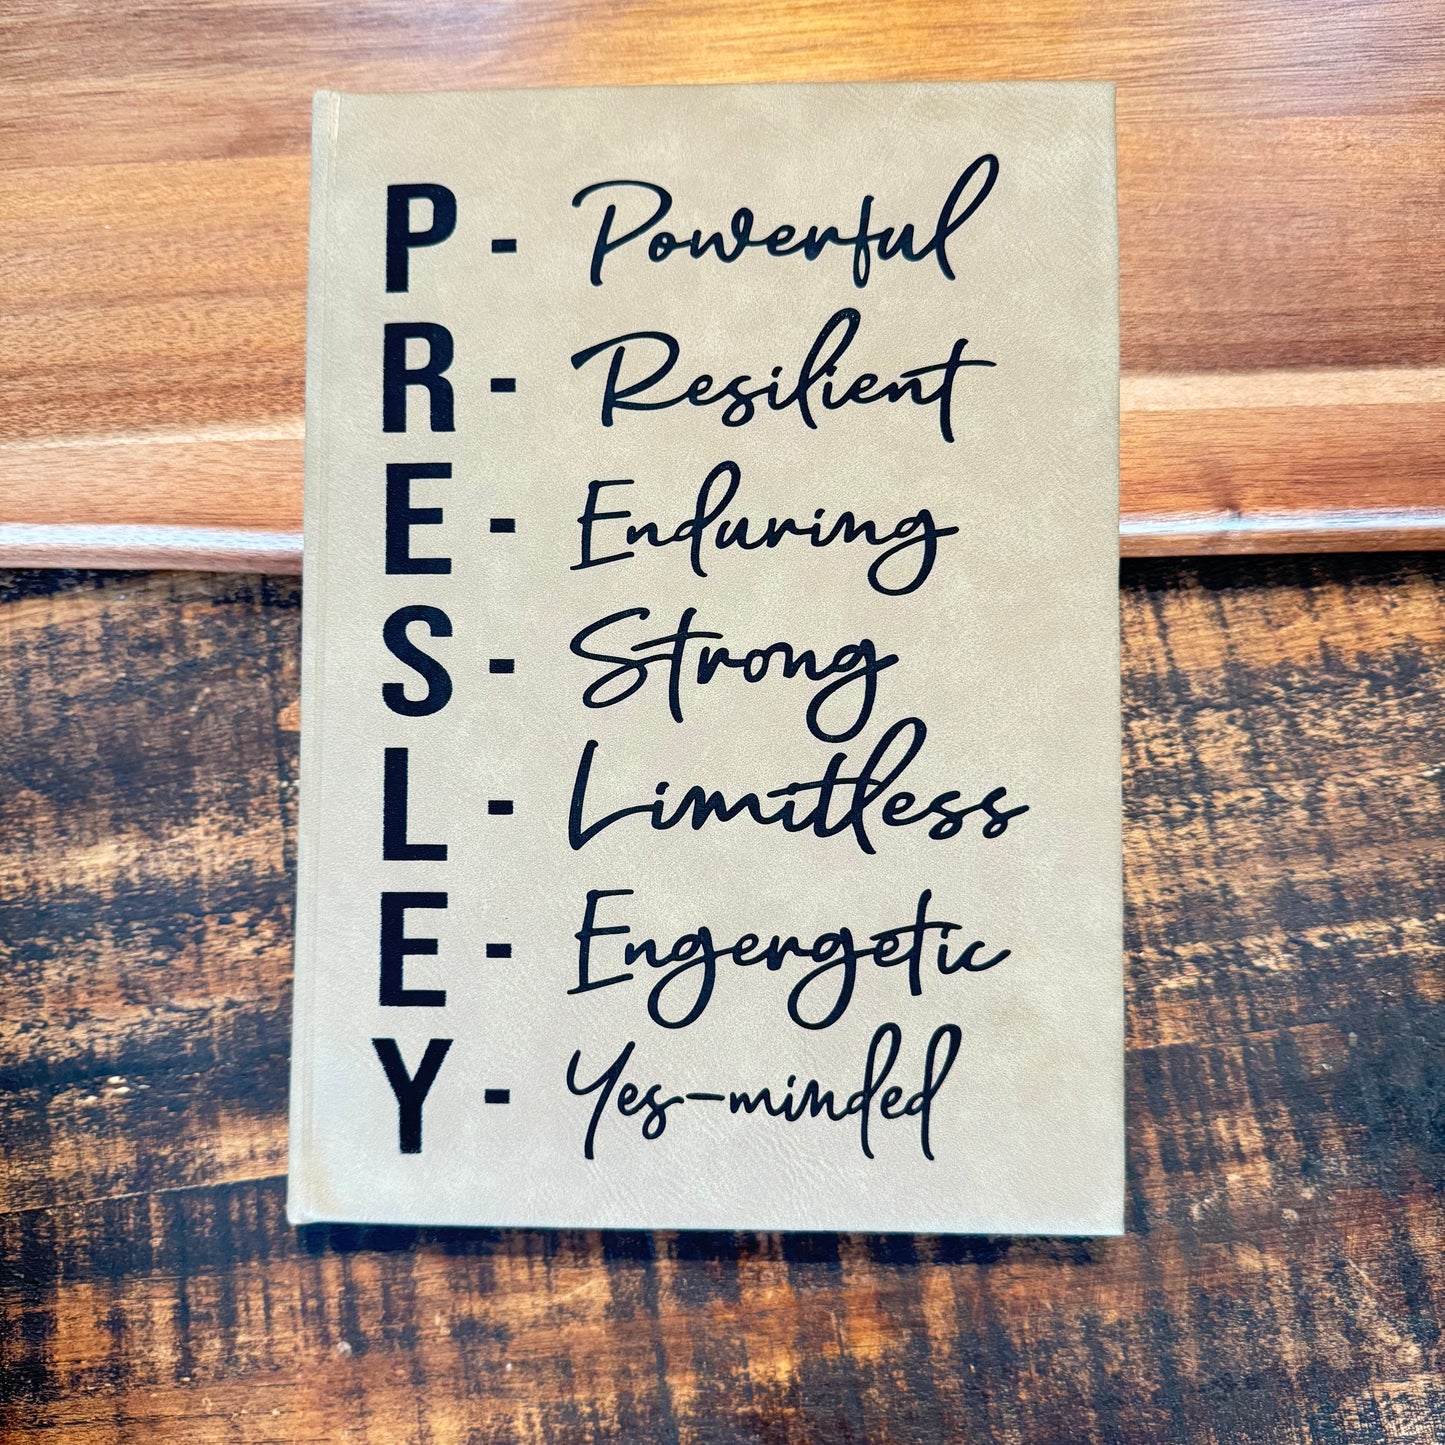 P - Powerful
R - Resilient
E - Enduring
S - Strong
L - Limitless
E - Engergetic
Y - Yes-minded